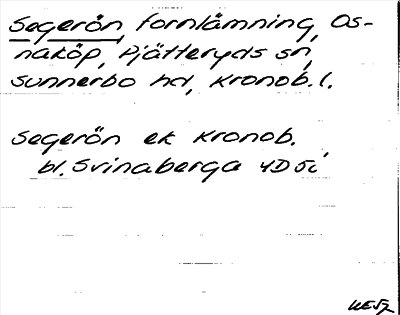 Segerön, fornlämning, Os-
naköp, Pjätteryds sn,
Sunnerbo hd, Kronob. l.
Segerön ek Kronob.
bl. Svinaberga 4D 5i